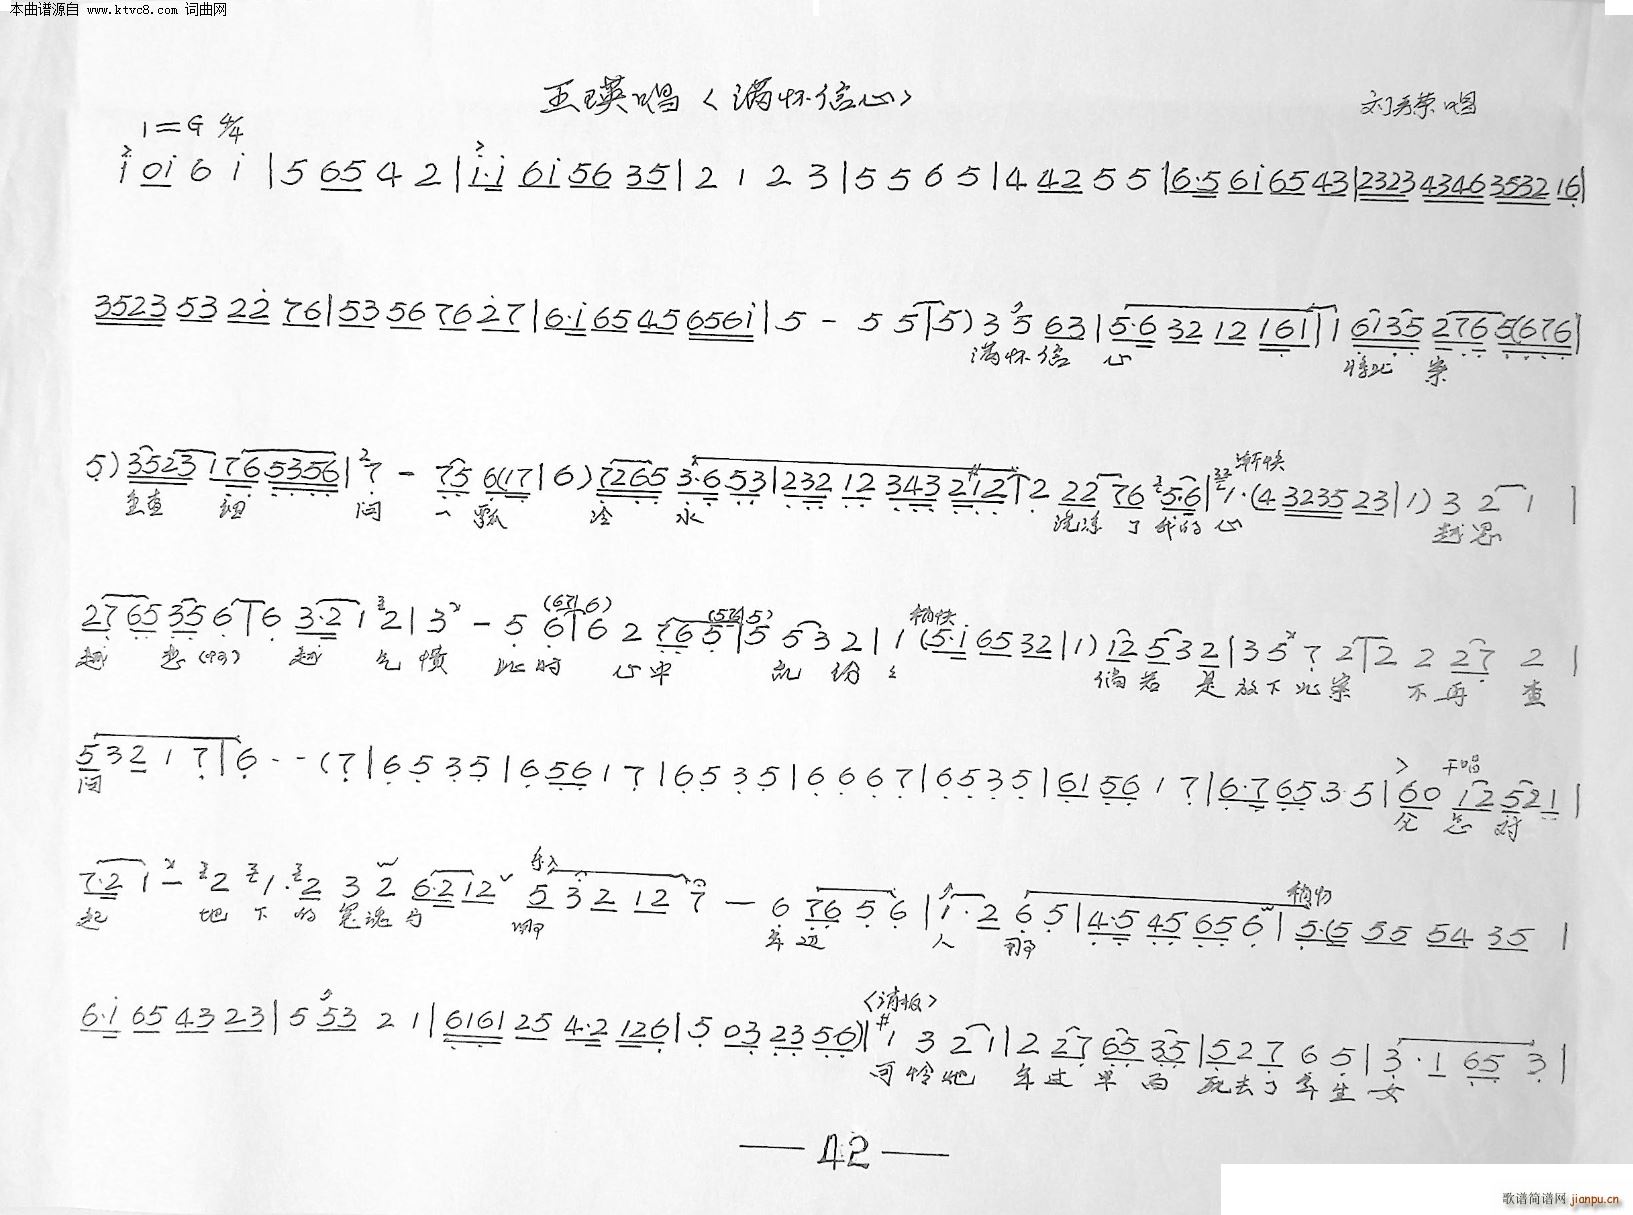 本曲谱源自 www.ktvc8.com 词曲网
王瑛唱〈满怀信心〉
唱
1=G 4/4
i 0i 6 i | 5 65 4 2 | i·i 6i 56 35 | 2 1 2 3 | 5 5 6 5 | 4 42 5 5 | 6·5 6i 65 43 | 2323 4346 3532 16 |
3523 53 22 76 | 53 56 76 27 | 6·i 65 45 656i | 5 - 5 5 | 5) 3 5 63 | 5·6 32 12 161 | 1 6135 276 5(676 |
满怀信 心 将此 案
5) 3523 176 5356 | 7 - 75 6(17 | 6) 7265 3·6 53 | 232 12 343 212 | 2 22 76 5·6 | 1·(4 3235 23 | 1) 3 2 1 |
渐快
查 细 问 一瓢 冷 水 洗 了我的心 越思
2765 35 6 | 6 3·2 1 2 | 3 - 5 6 | 6 2 76 5 | 5 53 2 | 1 (5·i 65 32 | 1) 12 532 | 3 5 7 2 | 2 2 27 2 |
(671 6) (576 5) 稍快
越 想(呀) 越 气愤 此时 心中 乱纷纷 倘若 是放下此案 不再 查
532 1 7 | 6 - - (7 | 6 5 3 5 | 6 56 1 7 | 6 5 3 5 | 6 6 6 7 | 6 5 3 5 | 61 56 1 7 | 6·7 65 3 5 | 60 12 521 |
干唱
问 怎 对
7·2 1 - 2 1·2 3 2 6·2 12 5 3 2 12 7 - 6 76 5 6 | 1·2 6 5 | 4·5 45 65 6 | 5·(5 55 54 35 |
乐入
起 地下的冤魂与 啊 年迈 人 那
6·i 65 43 23 | 5 53 2 1 | 6161 25 4·2 126 | 5 03 23 56) | 1 3 2 1 | 2 27 65 35 | 5 2 7 6 5 | 3·1 65 3 |
〈清板〉
可怜他 年过半百 死去了亲生女
— 42 —
歌谱简谱网 jianpu.cn